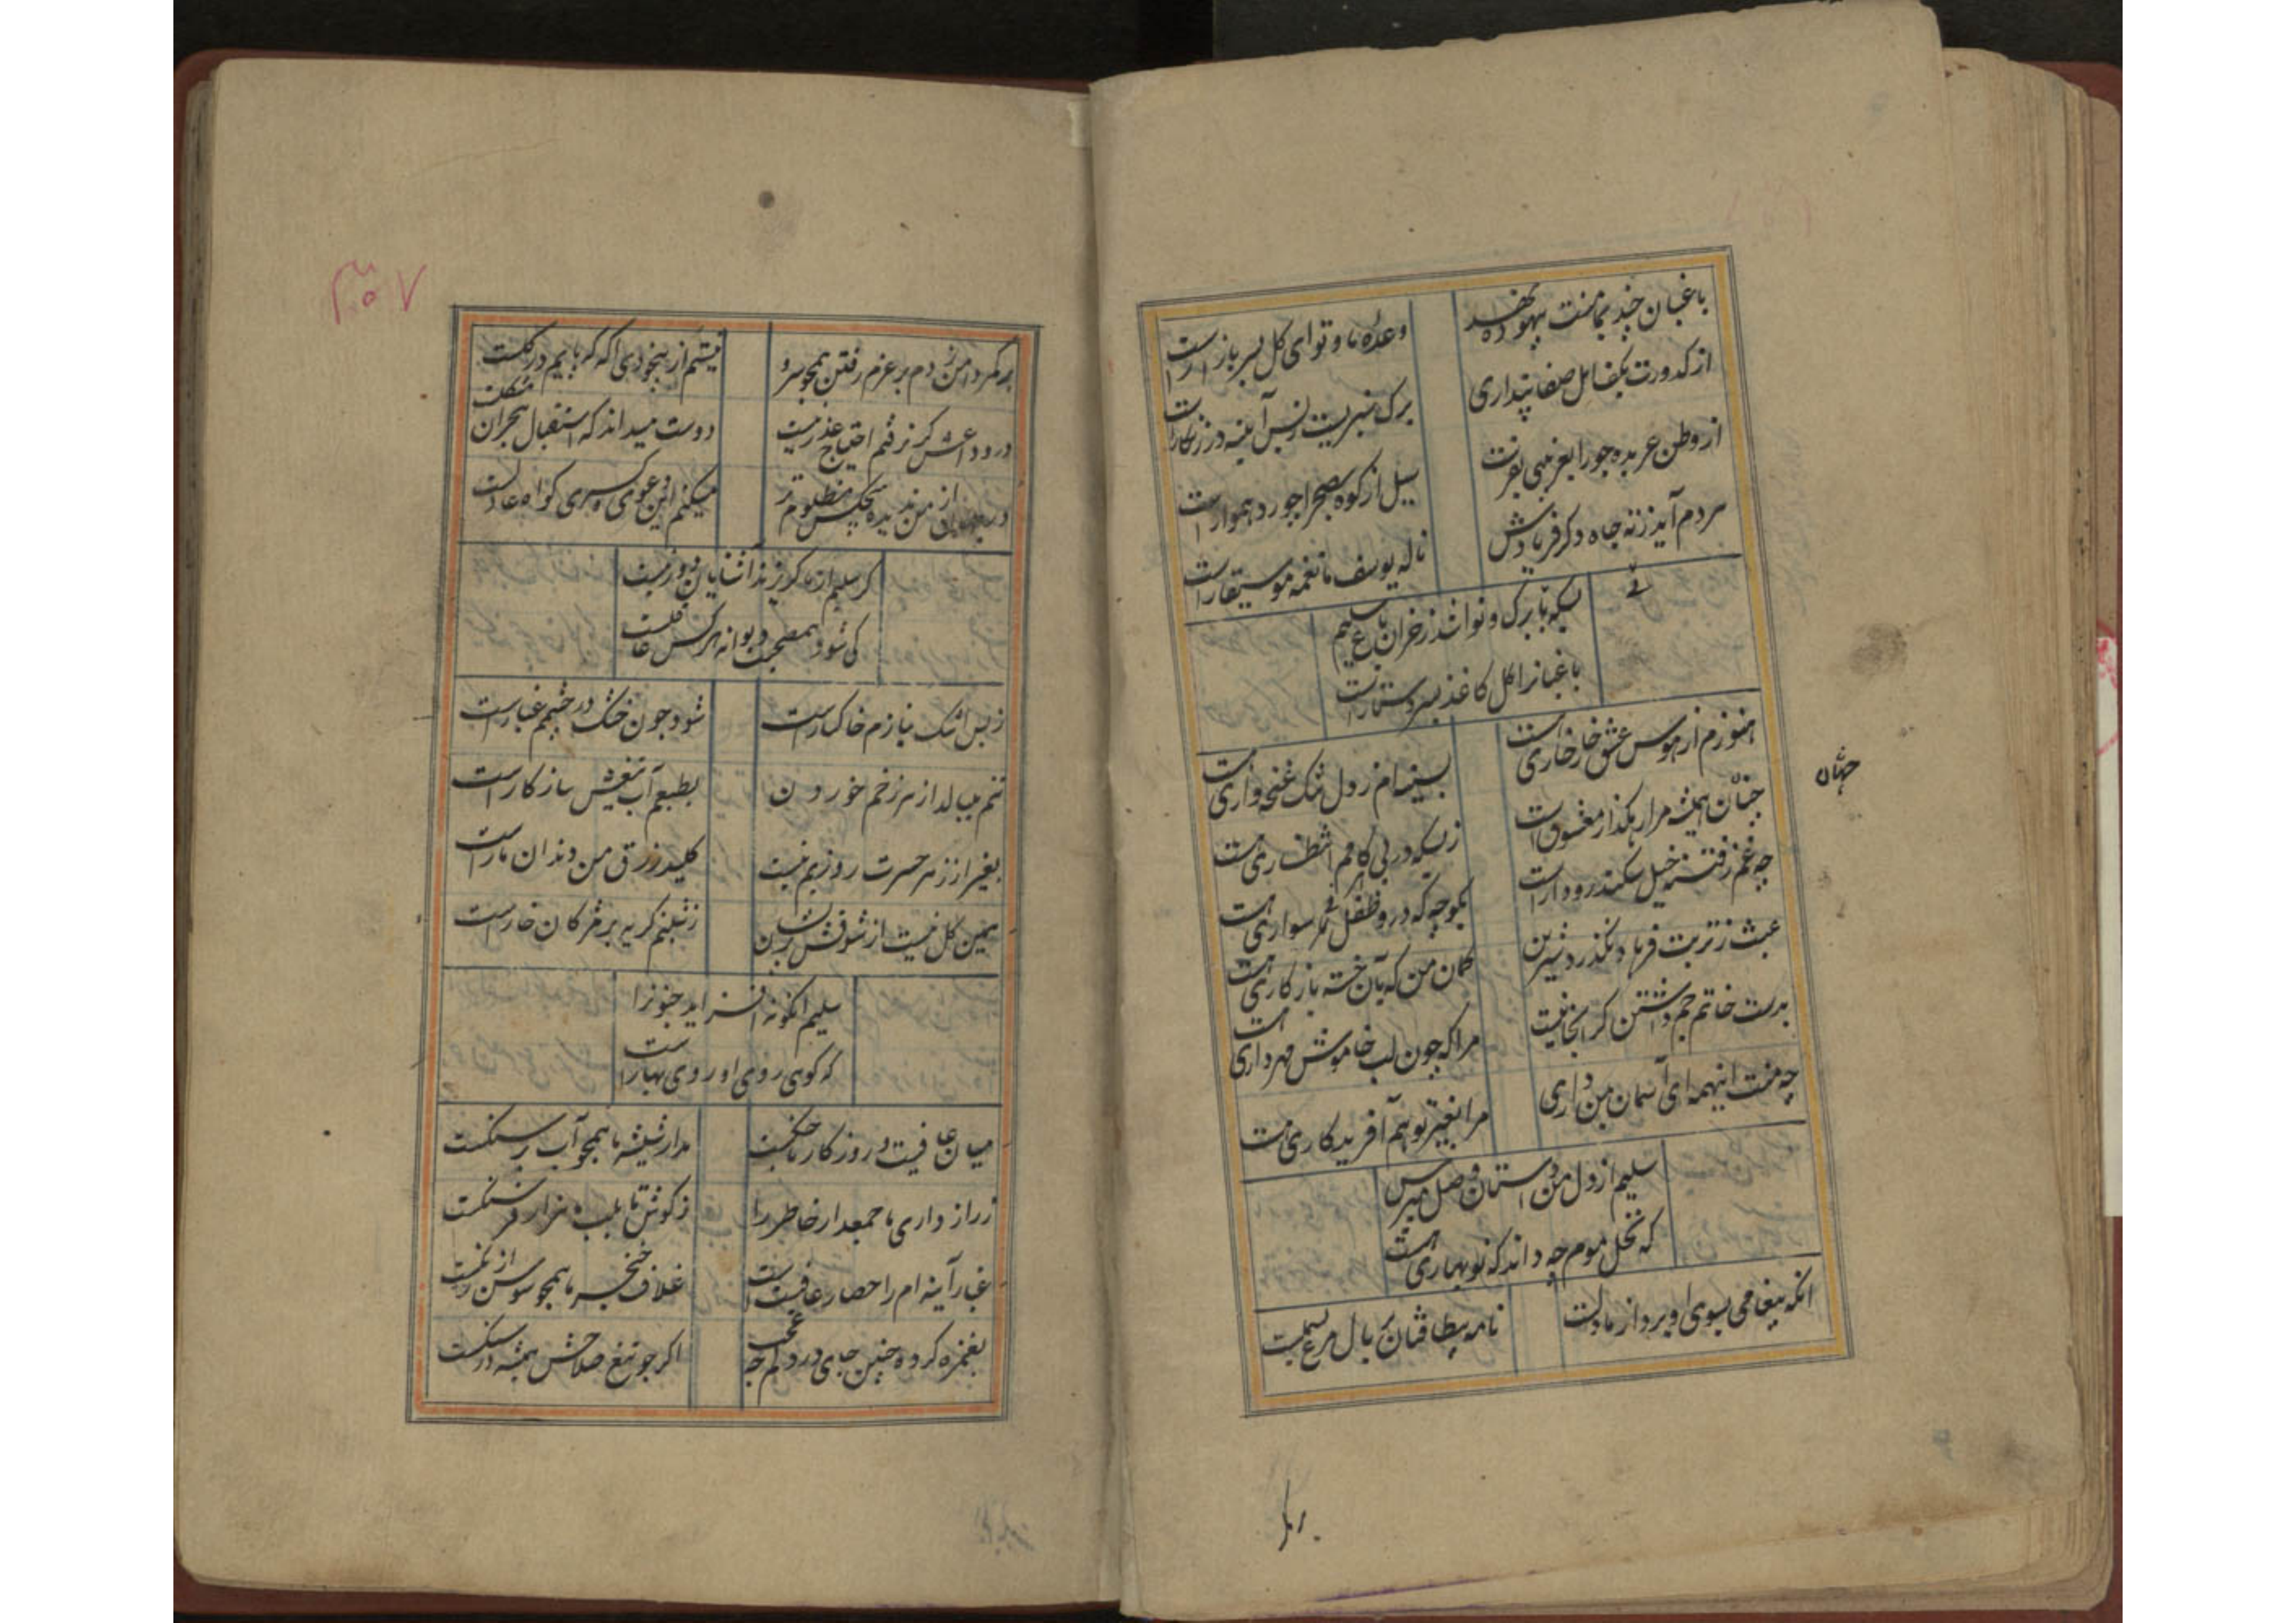 باغبان چند بما منت بیهوده نهد
وعده ما و تو ای کل بسر بازارست
از کدورت بکف اهل صفا پنداری
برک سبزیست زبس آینه در زنکارست
از وطن عربده جو را بغریبی بفرست
سیل از کوه بصحرا چو رود هموارست
مردم آید ز ته چاه دکر فریادش
ناله یوسف ما نغمه موسیقارست
بسکه بی برک و نوا شد ز خزان باغ سلیم
باغبانرا کل کاغذ بسر دستارست
هنوزم از هوس عشق خارخاری هست
بسینه ام ز دل تنک غنچه واری هست
چنان همیشه مرا رهکذار معشوق است
ز بسکه در پی کامم انتظاری هست
جهان
چه غم ز فتنه خیل سکندر و داراست
بکوچه که درو طفل نی سواری هست
عبث ز تربت فرهاد نکذرد شیرین
کمان من که بآن خسته باز کاری هست
بدست خاتم جم داشتن کر اینجا نیست
مرا که چون لب خاموش مهرداری هست
چه منت اینهمه ای آسمان بمن داری
مرا بغیر تو هم آفریدکاری هست
سلیم از دل من داستان وصل مپرس
که نخل موم چه داند که نوبهاری هست
انکه پیغامی بسوی او برد از ما دلست
نامه بیطاقتان بر بال مرغ بسملست
بر کمر
۳۰۷
بر کمر دامن زدم بر عزم رفتن همچو سرو
نیستم از بیخودی اکه که پایم در کلست
در وداعش کر نرفتم احتیاج عذر نیست
دوست میداند که استقبال هجران مشکلست
در جهان از من ندیده هیچکس مظلوم تر
میکنم این دعوی و کسری کواه عادلست
کر سلیم از ما کریزند آشنایان دور نیست
کی شود همصحبت دیوانه هر کس عاقلست
ز بس اشک نیازم خاکسارست
شود چون خشک در چشمم غبارست
تنم میبالد از هر زخم خوردن
بطبعم آب تیغش سازکارست
بغیر از زهر حسرت روزیم نیست
کلید رزق من دندان مارست
همین کل نیست از شوقش پریشان
ز شبنم کریه بر مژکان خارست
سلیم انکونه افزاید جنونرا
که کوی روی او روی بهارست
میان عافیت و روزکار ما جنکست
مدار شیشه ما همچو آب بر سنکست
ز رازداری ما جمع دار خاطر را
ز کوش تا بلب ما هزار فرسنکست
غبار آینه ام را حصار عافیت است
غلاف خنجر ما همچو سوسن از زنکست
بغمزه کرده چنین جای در دلم چه عجب
اکر چو تیغ صلاحش همیشه در سنکست